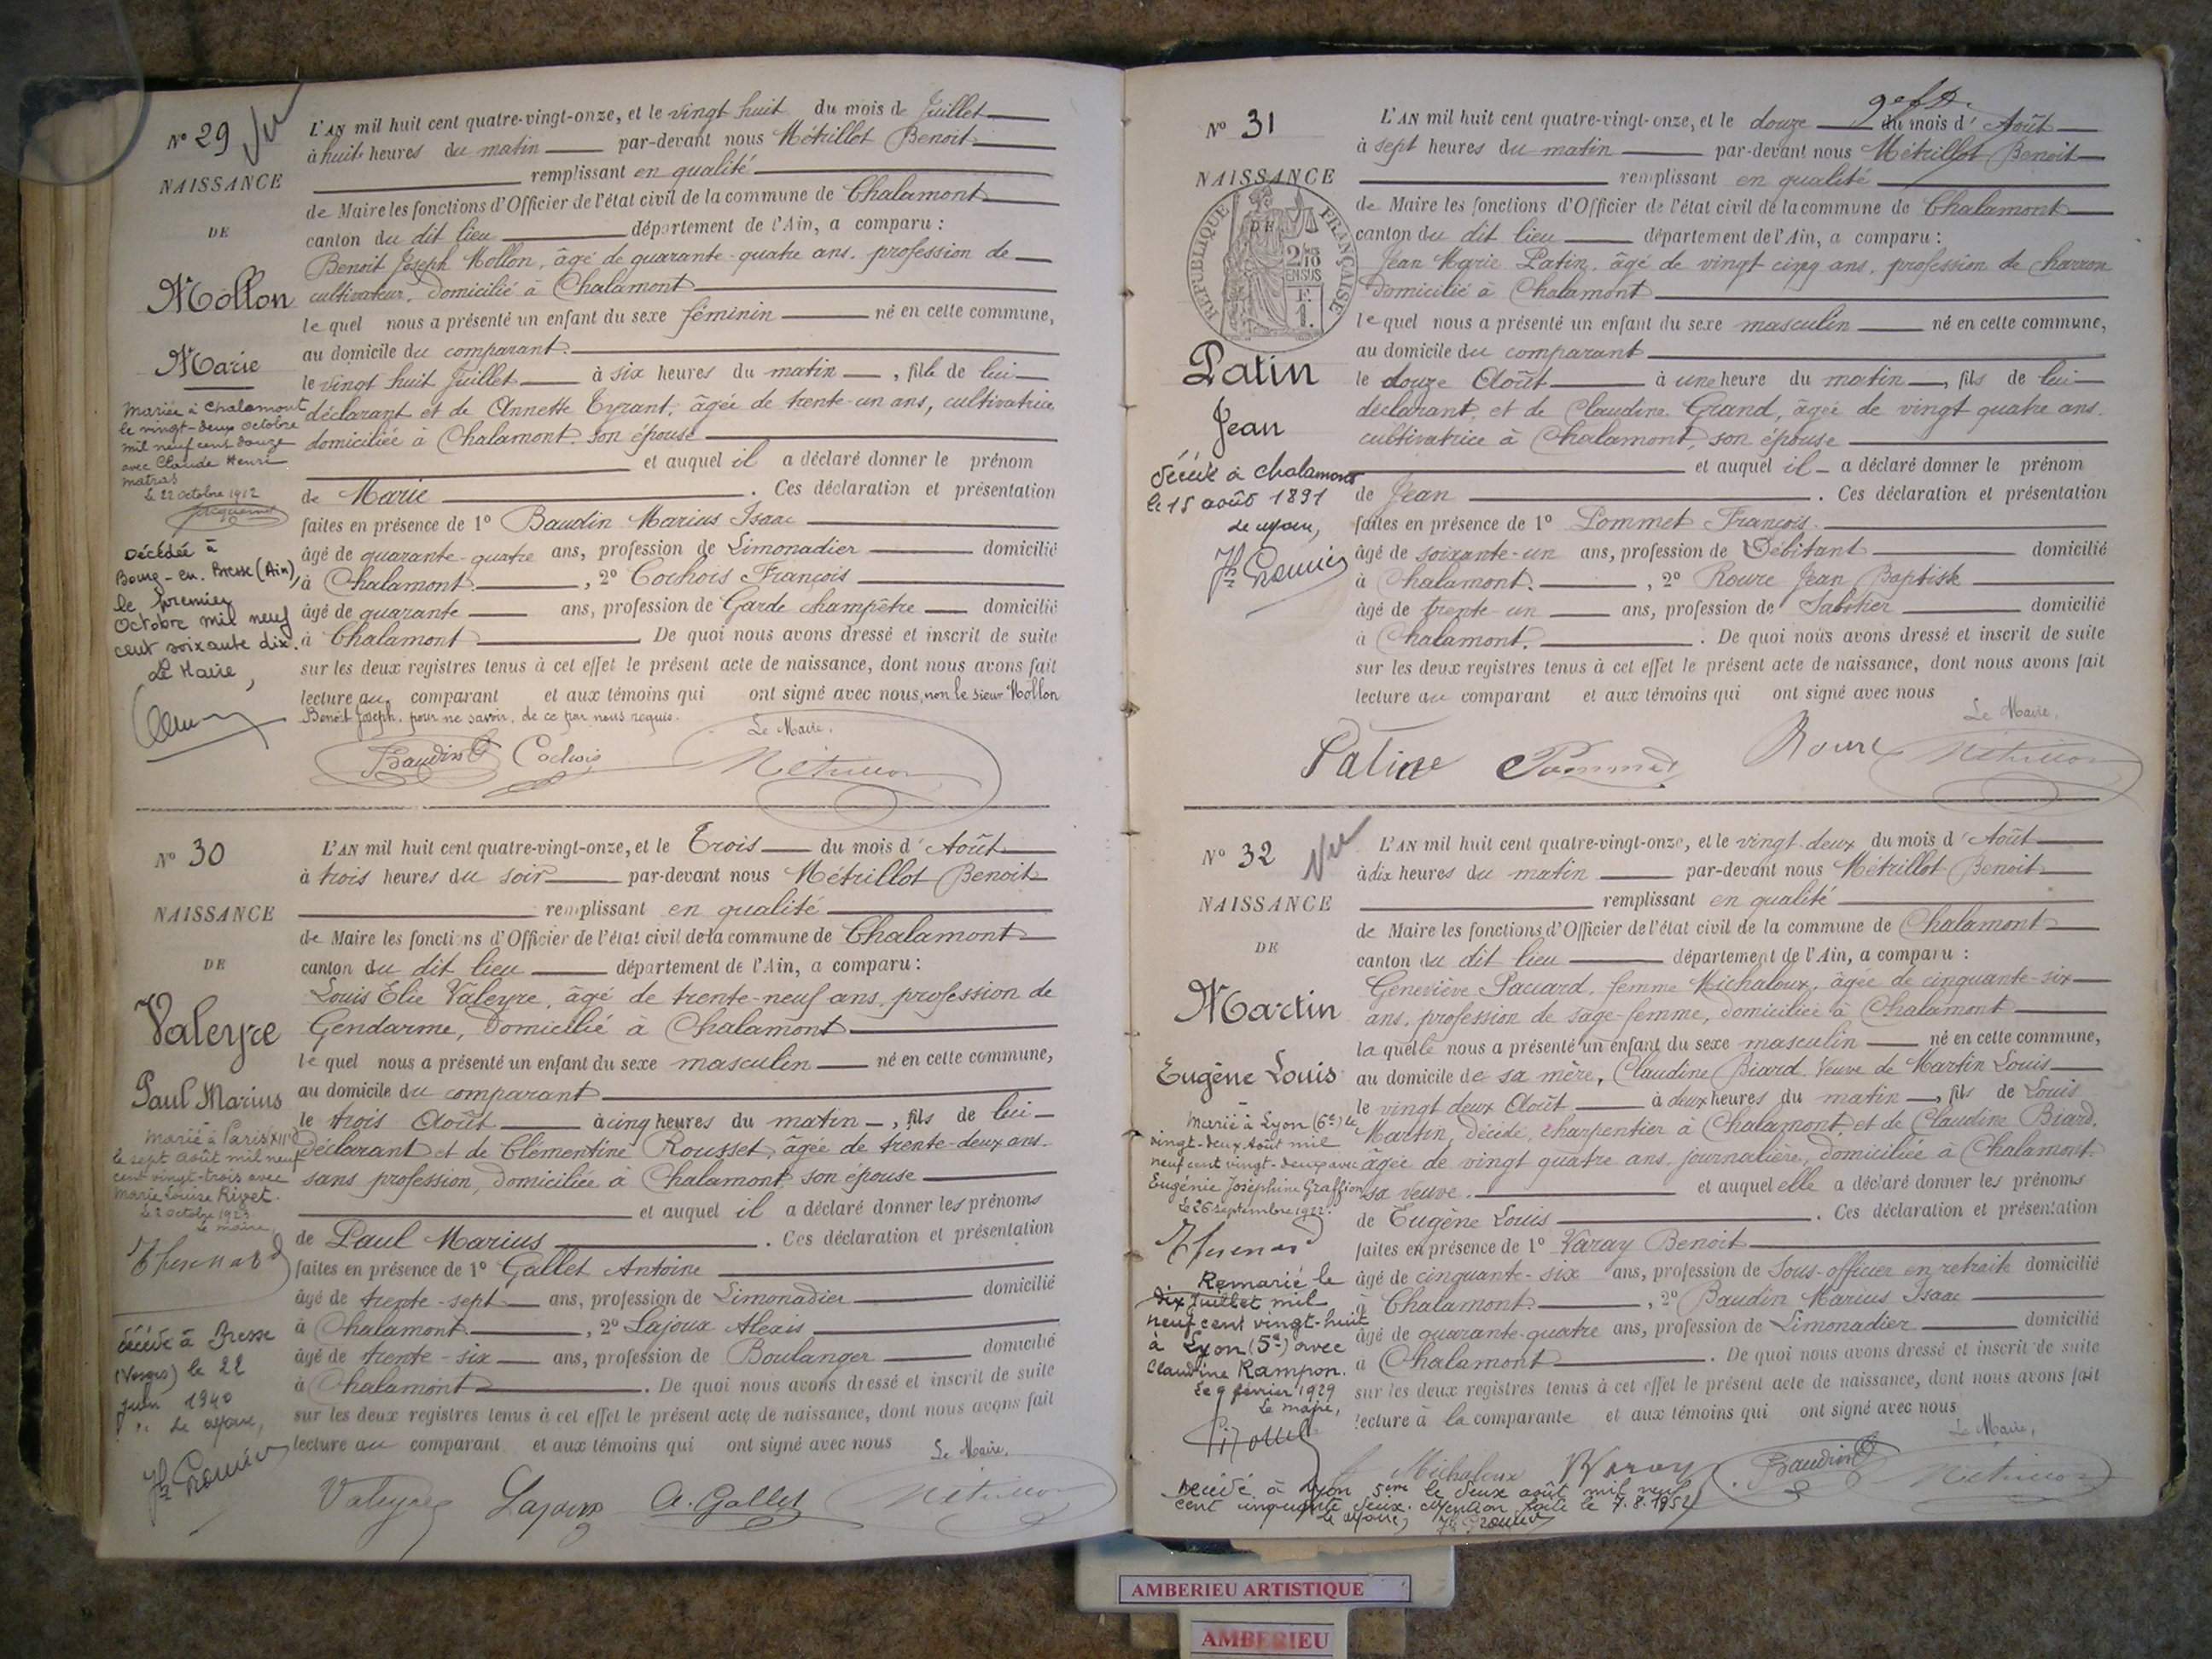 N° 29 Vu
NAISSANCE
DE
Mollon
Marie
mariée à Chalamont
le vingt-deux octobre
mil neuf cent douze
avec Claude Henri
matras
Le 22 octobre 1912
Décédée à
Bourg-en-Bresse (Ain)
le premier
Octobre mil neuf
cent soixante dix.
Le Maire,
L'AN mil huit cent quatre-vingt-onze, et le vingt huit du mois de Juillet
à huit heures du matin par-devant nous Métrillot Benoit
remplissant en qualité
de Maire les fonctions d'Officier de l'état civil de la commune de Chalamont
canton du dit lieu département de l'Ain, a comparu :
Benoit Joseph Mollon, âgé de quarante-quatre ans, profession de
cultivateur, domicilié à Chalamont
lequel nous a présenté un enfant du sexe féminin né en cette commune,
au domicile du comparant.
le vingt huit Juillet à six heures du matin, fille de lui
déclarant et de Annette Tyrant, âgée de trente-un ans, cultivatrice
domiciliée à Chalamont son épouse
et auquel il a déclaré donner le prénom
de Marie. Ces déclaration et présentation
faites en présence de 1° Baudin Marius Isaac
âgé de quarante-quatre ans, profession de Limonadier domicilié
à Chalamont, 2° Cochois François
âgé de quarante ans, profession de Garde champêtre domicilié
à Chalamont. De quoi nous avons dressé et inscrit de suite
sur les deux registres tenus à cet effet le présent acte de naissance, dont nous avons fait
lecture au comparant et aux témoins qui ont signé avec nous, non le sieur Mollon
Benoit Joseph, pour ne savoir, de ce par nous requis.
Le Maire,
Baudin Cochois Métrillot
N° 30
NAISSANCE
DE
Valeyre
Paul Marius
marié à Paris (XIIe)
le sept août mil neuf
cent vingt-trois avec
Marie Louise Rivet.
Le 2 octobre 1923
Le maire,
Thesnard
décédé à Bresse
(Vosges) le 22
juin 1940
Le Maire,
L'AN mil huit cent quatre-vingt-onze, et le Trois du mois d'Août
à trois heures du soir par-devant nous Métrillot Benoit
remplissant en qualité
de Maire les fonctions d'Officier de l'état civil de la commune de Chalamont
canton du dit lieu département de l'Ain, a comparu :
Louis Elie Valeyre, âgé de trente-neuf ans, profession de
Gendarme, domicilié à Chalamont
lequel nous a présenté un enfant du sexe masculin né en cette commune,
au domicile du comparant
le trois Août à cinq heures du matin, fils de lui
déclarant et de Clémentine Rousset, âgée de trente-deux ans,
sans profession, domiciliée à Chalamont son épouse
et auquel il a déclaré donner les prénoms
de Paul Marius. Ces déclaration et présentation
faites en présence de 1° Gallet Antoine
âgé de trente-sept ans, profession de Limonadier domicilié
à Chalamont, 2° Lajoux Alexis
âgé de trente-six ans, profession de Boulanger domicilié
à Chalamont. De quoi nous avons dressé et inscrit de suite
sur les deux registres tenus à cet effet le présent acte de naissance, dont nous avons fait
lecture au comparant et aux témoins qui ont signé avec nous
Le Maire,
Valeyre Lajoux A. Gallet Métrillot
N° 31
NAISSANCE
DE
REPUBLIQUE FRANÇAISE
2/10 EN SUS
F. 1.
Patin
Jean
décédé à Chalamont
le 15 août 1891
Le Maire,
L'AN mil huit cent quatre-vingt-onze, et le douze du mois d'Août
à sept heures du matin par-devant nous Métrillot Benoit
remplissant en qualité
de Maire les fonctions d'Officier de l'état civil de la commune de Chalamont
canton du dit lieu département de l'Ain, a comparu :
Jean Marie Patin, âgé de vingt cinq ans, profession de charron
domicilié à Chalamont
lequel nous a présenté un enfant du sexe masculin né en cette commune,
au domicile du comparant
le douze Août à une heure du matin, fils de lui
déclarant, et de Claudine Grand, âgée de vingt quatre ans,
cultivatrice à Chalamont, son épouse
et auquel il a déclaré donner le prénom
de Jean. Ces déclaration et présentation
faites en présence de 1° Pommet François
âgé de soixante-un ans, profession de Débitant domicilié
à Chalamont, 2° Roure Jean Baptiste
âgé de trente-un ans, profession de Sabotier domicilié
à Chalamont. De quoi nous avons dressé et inscrit de suite
sur les deux registres tenus à cet effet le présent acte de naissance, dont nous avons fait
lecture au comparant et aux témoins qui ont signé avec nous
Le Maire,
Patin Pommet Roure Métrillot
N° 32 Vu
NAISSANCE
DE
Martin
Eugène Louis
Marié à Lyon (6e) le
vingt-deux Août mil
neuf cent vingt-deux avec
Eugénie Joséphine Graffion
Le 26 septembre 1922.
Thesnard
Remarié le
dix Juillet mil
neuf cent vingt-huit
à Lyon (5e) avec
Claudine Rampon.
Le 9 février 1929
Le maire,
L'AN mil huit cent quatre-vingt-onze, et le vingt-deux du mois d'Août
à dix heures du matin par-devant nous Métrillot Benoit
remplissant en qualité
de Maire les fonctions d'Officier de l'état civil de la commune de Chalamont
canton du dit lieu département de l'Ain, a comparu :
Geneviève Paccard, femme Michaloux, âgée de cinquante-six
ans, profession de sage-femme, domiciliée à Chalamont
laquelle nous a présenté un enfant du sexe masculin né en cette commune,
au domicile de sa mère, Claudine Biard Veuve de Martin Louis
le vingt deux Août à deux heures du matin, fils de Louis
Martin, décédé, charpentier à Chalamont, et de Claudine Biard,
âgée de vingt quatre ans, journalière, domiciliée à Chalamont
sa veuve. et auquel elle a déclaré donner les prénoms
de Eugène Louis. Ces déclaration et présentation
faites en présence de 1° Varay Benoit
âgé de cinquante-six ans, profession de Sous-officier en retraite domicilié
à Chalamont, 2° Baudin Marius Isaac
âgé de quarante-quatre ans, profession de Limonadier domicilié
à Chalamont. De quoi nous avons dressé et inscrit de suite
sur les deux registres tenus à cet effet le présent acte de naissance, dont nous avons fait
lecture à la comparante et aux témoins qui ont signé avec nous
Le Maire,
Michaloux Varay Baudin Métrillot
Décédé à Lyon 5ème le deux août mil neuf
cent cinquante deux. Mention faite le 7.8.1952
Le Maire,
AMBERIEU ARTISTIQUE
AMBERIEU